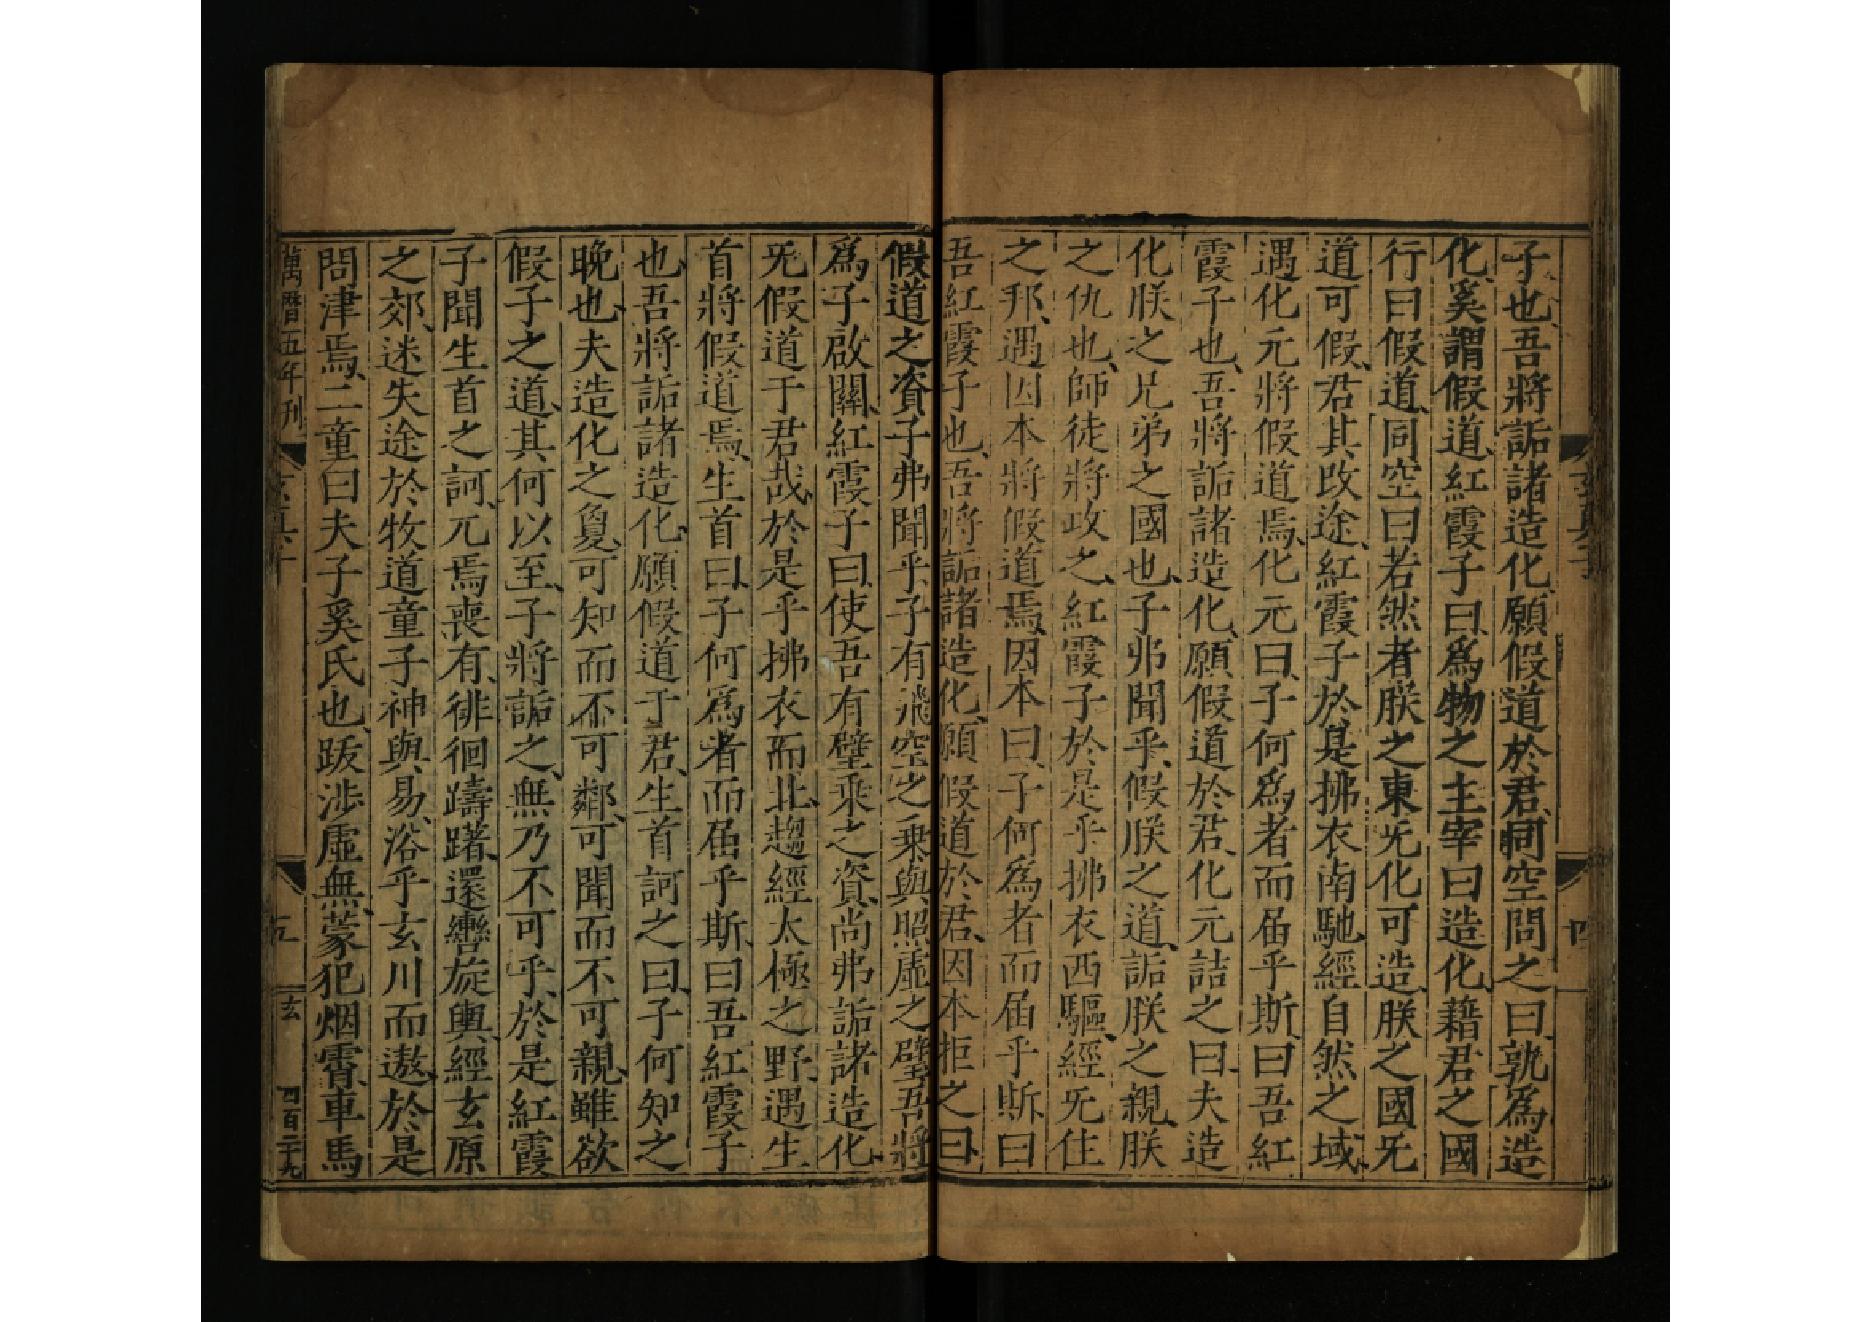 子也、吾將詬諸造化、願假道於君、同空問之曰、孰爲造
化、奚謂假道、紅霞子曰、爲物之主宰曰造化、藉君之國
行曰假道、同空曰若然者、朕之東旡化可造、朕之國旡
道可假、君其改途、紅霞子於是拂衣南馳、經自然之域、
遇化元將假道焉、化元曰、子何爲者而屆乎斯、曰吾紅
霞子也、吾將詬諸造化、願假道於君、化元詰之曰、夫造
化朕之兄弟之國也、子弗聞乎、假朕之道、詬朕之親、朕
之仇也、師徒將攻之、紅霞子於是乎拂衣西驅、經旡住
之邦、遇因本將假道焉、因本曰、子何爲者而屆乎斯、曰
吾紅霞子也、吾將詬諸造化、願假道於君、因本拒之曰、
假道之資、子弗聞乎、子有飛空之乗、與照虛之璧、吾將
爲子啟關、紅霞子曰、使吾有璧乗之資、尚弗詬諸造化、
旡假道于君哉、於是乎拂衣而北趨、經太極之野、遇生
首將假道焉、生首曰、子何爲者而屆乎斯、曰吾紅霞子
也、吾將詬諸造化、願假道于君、生首訶之曰、子何知之
晚也、夫造化之敻、可知而不可鄰、可聞而不可親、雖欲
假子之道、其何以至、子將詬之、無乃不可乎、於是紅霞
子聞生首之訶、兀焉喪有、徘徊躊躇、還轡旋輿、經玄原
之郊、迷失途於牧道童子神與易、浴乎玄川而遨、於是
問津焉、二童曰夫子奚氏也、跋涉虛無、蒙犯烟霄、車馬
萬曆五年刊
五
玄
四百二十九